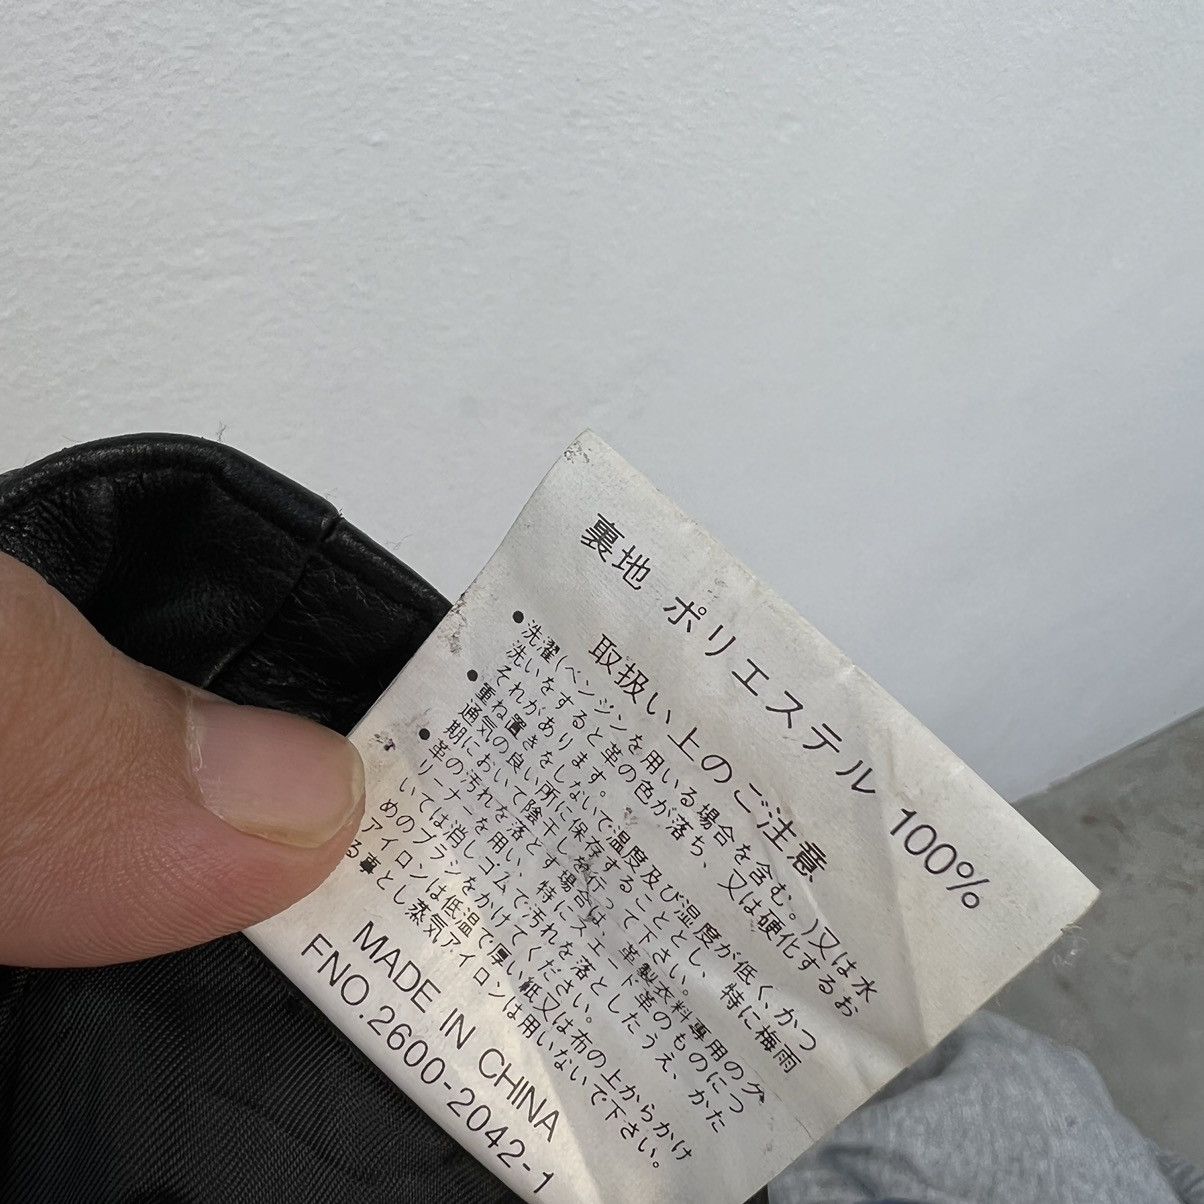 裏地 ポリエステル 100%
取扱い上のご注意
●洗濯(ベンジンを用いる場合を含む。)又は水
洗いをすると革の色が落ち、又は硬化するお
それがあります。
●重ね置きをしないで温度及び湿度が低く、かつ
通気の良い所に保存することとし、特に梅雨
期において陰干しを行って下さい。
●革の汚れを落とす場合は、革製衣料専用のク
リーナーを用い、特にスエード革のものにつ
いては消しゴムで汚れを落としたうえ、かた
めのブラシをかけてください。
アイロンは低温で厚い紙又は布の上からかけ
る事とし蒸気アイロンは用いないで下さい。
MADE IN CHINA
FNO.2600-2042-1